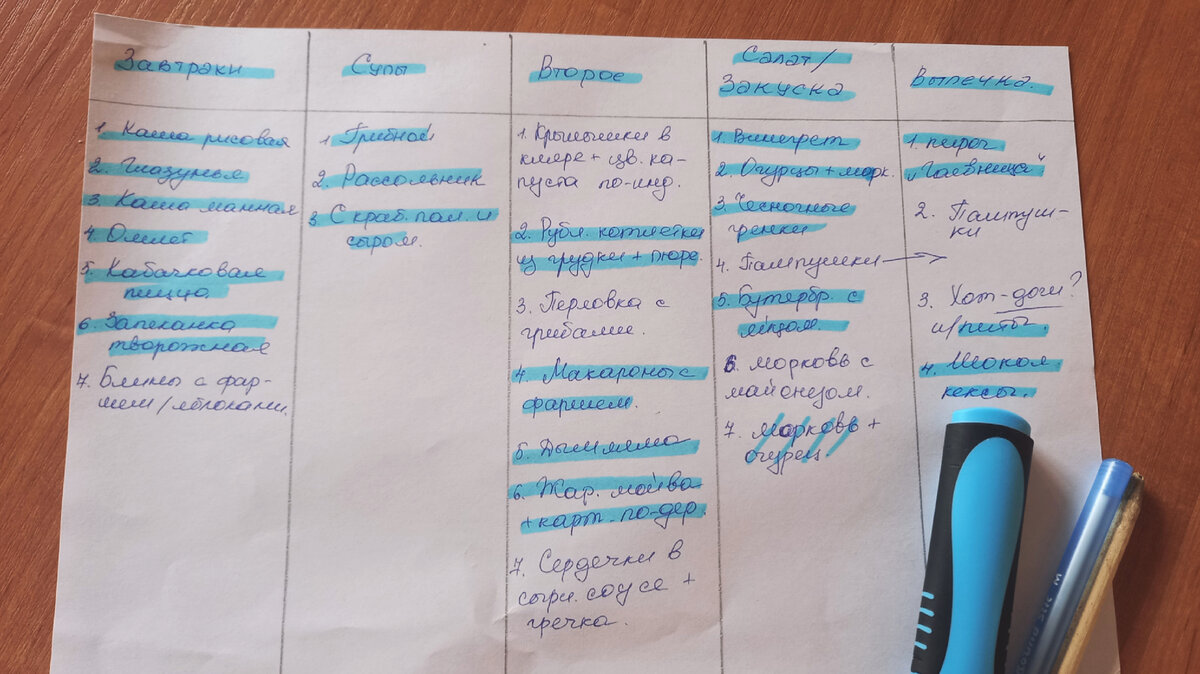 Завтраки
1. Каша рисовая
2. Глазунья
3. Каша манная
4. Омлет
5. Кабачковая
пицца.
6. Запеканка
творожная
7. Блины с фар-
шем/яблоками.
Супы
1 Грибной
2. Рассольник
3 С краб. пал. и
сыром.
Второе
1. Крылышки в
кляре + цв. ка-
пуста по-инд.
2. Рубл. котлетки
из грудки + пюре.
3. Перловка с
грибами.
4. Макароны с
фаршем.
5. Дымляма
6. Жар. мойва
+ карт. по-дер.
7. Сердечки в
сырн. соусе +
гречка.
Салат/
Закуска
1. Винегрет
2. Огурцы + морк.
3. Чесночные
гренки
4. Пампушки →
5. Бутербр. с
яйцом.
6. морковь с
майонезом.
7. Морковь +
огурец.
Выпечка.
1. пирог
"Лаевница"
2. Пампуш-
ки
3. Хот-доги?
и/питы.
4. Шокол.
кексы.